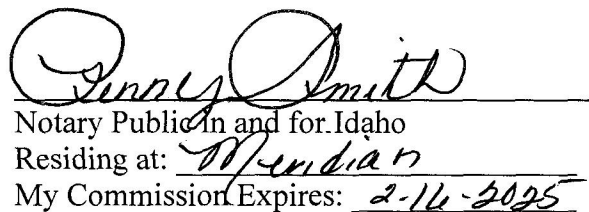 Penny Smith
Notary Public in and for Idaho
Residing at: Meridian
My Commission Expires: 2-16-2025